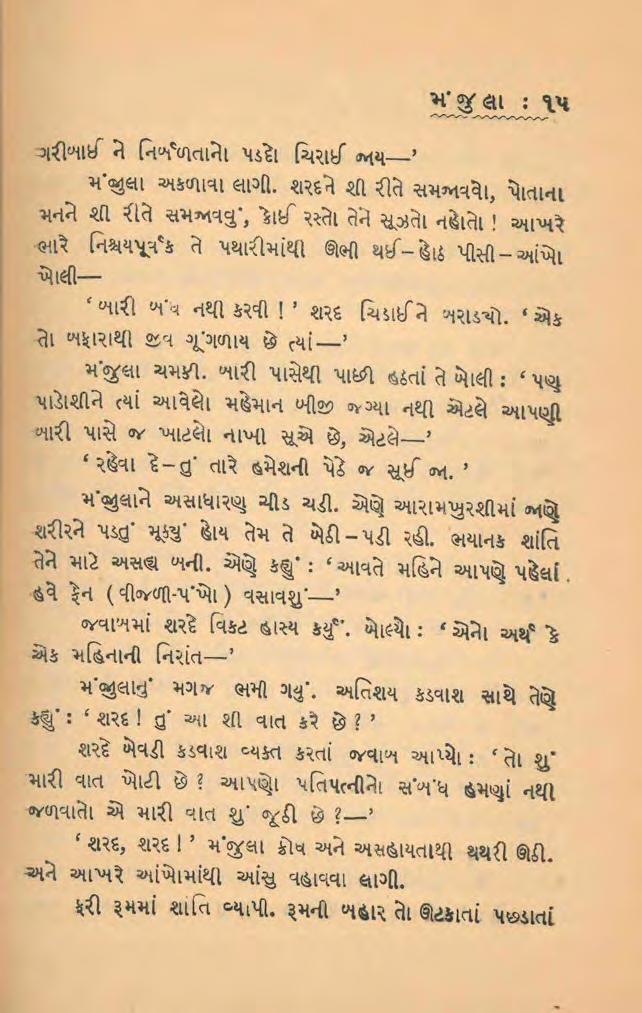 મંજુલા : ૧૫
ગરીબાઈ ને નિર્બળતાનો પડદો ચિરાઈ જાય—’
મંજુલા અકળાવા લાગી. શરદને શી રીતે સમજાવવો, પોતાના
મનને શી રીતે સમજાવવું, કોઈ રસ્તો તેને સૂઝતો નહોતો ! આખરે
ભારે નિશ્ચયપૂર્વક તે પથારીમાંથી ઊભી થઈ – હોઠ પીસી – આંખો
ખોલી—
‘ બારી બંધ નથી કરવી ! ’ શરદ ચિડાઈને બરાડ્યો. ‘ એક
તો બફારાથી જીવ ગૂંગળાય છે ત્યાં—’
મંજુલા ચમકી. બારી પાસેથી પાછી હઠતાં તે બોલી : ‘ પણ
પાડોશીને ત્યાં આવેલો મહેમાન બીજી જગ્યા નથી એટલે આપણી
બારી પાસે જ ખાટલો નાખી સૂએ છે, એટલે—’
‘ રહેવા દે – તું તારે હમેશની પેઠે જ સૂઈ જા. ’
મંજુલાને અસાધારણ ચીડ ચડી. એણે આરામખુરશીમાં જાણે
શરીરને પડતું મૂક્યું હોય તેમ તે બેઠી – પડી રહી. ભયાનક શાંતિ
તેને માટે અસહ્ય બની. એણે કહ્યું : ‘ આવતે મહિને આપણે પહેલાં
હવે ફેન ( વીજળી-પંખો ) વસાવશું—’
જવાબમાં શરદે વિકટ હાસ્ય કર્યું. બોલ્યો : ‘ એનો અર્થ કે
એક મહિનાની નિરાંત—’
મંજુલાનું મગજ ભમી ગયું. અતિશય કડવાશ સાથે તેણે
કહ્યું : ‘ શરદ ! તું આ શી વાત કરે છે ? ’
શરદે બેવડી કડવાશ વ્યક્ત કરતાં જવાબ આપ્યો : ‘ તો શું
મારી વાત ખોટી છે ? આપણો પતિપત્નીનો સંબંધ હમણાં નથી
જળવાતો એ મારી વાત શું જૂઠી છે ?—’
‘ શરદ, શરદ ! ’ મંજુલા ક્રોધ અને અસહાયતાથી થથરી ઊઠી.
અને આખરે આંખોમાંથી આંસુ વહાવવા લાગી.
ફરી રૂમમાં શાંતિ વ્યાપી. રૂમની બહાર તો ઊટકાતાં પછડાતાં